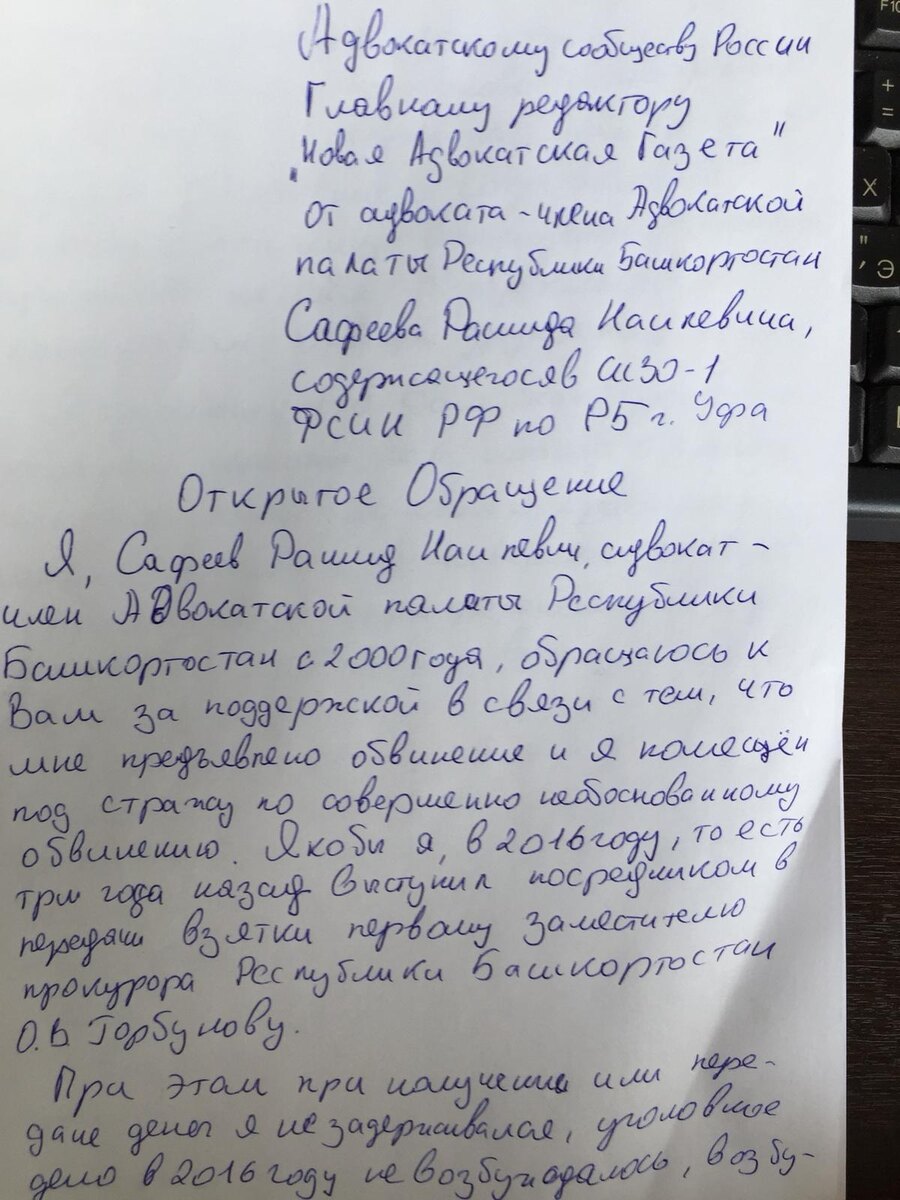 Адвокатскому сообществу России
Главному редактору
"Новая Адвокатская Газета"
от адвоката - члена Адвокатской
палаты Республики Башкортостан
Сафеева Рашида Наилевича,
содержащегося в СИЗО-1
ФСИН РФ по РБ г. Уфа
Открытое Обращение
Я, Сафеев Рашид Наилевич, адвокат -
член Адвокатской палаты Республики
Башкортостан с 2000 года, обращаюсь к
Вам за поддержкой в связи с тем, что
мне предъявлено обвинение и я помещён
под стражу по совершенно необоснованному
обвинению. Якобы я, в 2016 году, то есть
три года назад выступил посредником в
передачи взятки первому заместителю
прокурора Республики Башкортостан
О.В Горбунову.
При этом при получении или пере-
даче денег я не задерживался, уголовное
дело в 2016 году не возбуждалось, возбу-
F10
+
=
X
"
'
Э